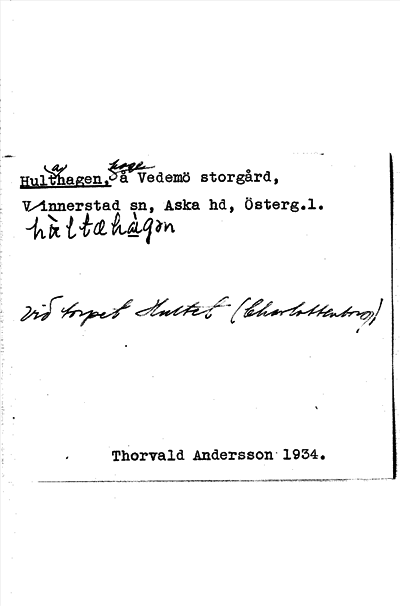 Hultahagen, hage å Vedemö storgård,
Vinnerstad sn, Aska hd, Österg.l.
hùltæhàgən
vid torpet Hultet (Charlottenborg)
Thorvald Andersson 1934.